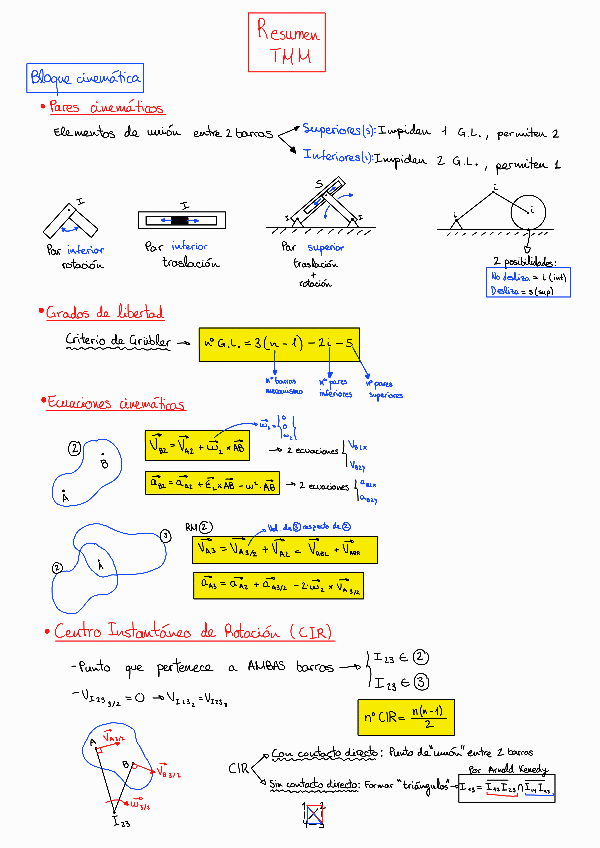 Resumen
TMM
Bloque cinemática
• Pares cinemáticos
Elementos de unión entre 2 barras
Superiores (s): Impiden 1 G.L., permiten 2
Inferiores (i): Impiden 2 G.L., permiten 1
I
Par inferior
rotación
I
Par inferior
traslación
S
I
I
Par superior
traslación
+
rotación
i
i
i
2 posibilidades:
No desliza = i (inf)
Desliza = s (sup)
• Grados de libertad
Criterio de Grübler → nº G.L. = 3(n-1) - 2i - s
nº barras
mecanismo
nº pares
inferiores
nº pares
superiores
• Ecuaciones cinemáticas
2
A
B
V_B2 = V_A2 + ω_2 × AB
ω_2 = {0 0 ω_2}
→ 2 ecuaciones { V_B2x V_B2y
a_B2 = a_A2 + ε_2 × AB - ω² · AB
→ 2 ecuaciones { a_B2x a_B2y
2
3
A
RM 2
Vel. de 3 respecto de 2
V_A3 = V_A3/2 + V_A2 = V_REL + V_ARR
• Centro Instantáneo de Rotación (CIR)
- Punto que pertenece a AMBAS barras → { I23 ∈ 2
I23 ∈ 3
- V_I23 3/2 = 0 → V_I23 2 = V_I23 3
nº CIR = n(n-1)/2
A
V_A3/2
B
V_B3/2
ω_3/2
I23
CIR
Con contacto directo: Punto de "unión" entre 2 barras
Sin contacto directo: Formar "triángulos" →
Por Arnold Kenedy
1 2
4 3